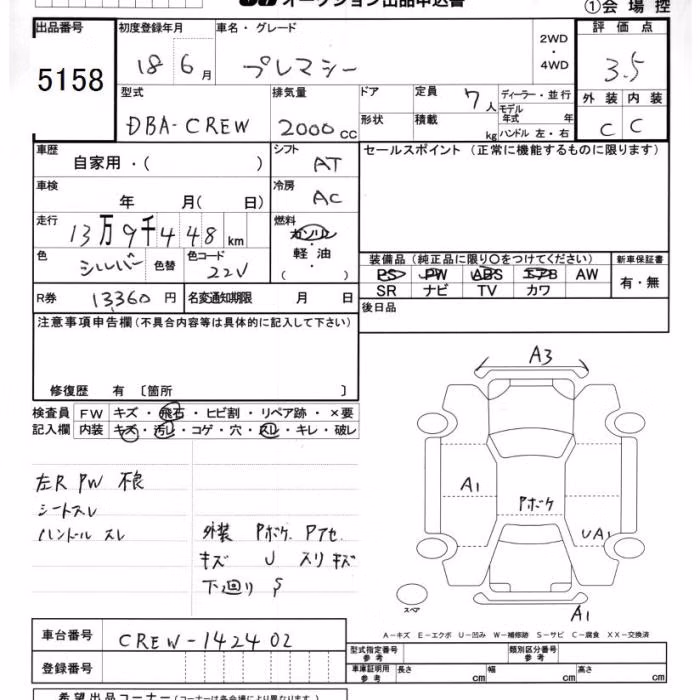 オークション出品申込書
①会場控
出品番号 初度登録年月 車名・グレード 2WD・4WD 評価点
5158 18 6月 プレマシー 3.5
型式 排気量 ドア 定員 7人 ディーラー・並行 外装 内装
DBA-CREW 2000cc 形状 積載 kg モデル年式 年 ハンドル 左・右 C C
車歴 自家用・( ) シフト AT セールスポイント (正常に機能するものに限ります)
車検 年 月( 日) 冷房 AC
走行 13万9千448km 燃料 ガソリン・軽油・( )
色 シルバー 色替 色コード 22V
装備品 (純正品に限り○をつけてください) 新車保証書
PS PW ABS エアB AW 有・無
SR ナビ TV カワ
R券 13360円 名変通知期限 月 日 後日品
注意事項申告欄(不具合内容等は具体的に記入して下さい)
修復歴 有 〔箇所 〕
検査員 FW キズ・飛石・ヒビ割・リペア跡・×要
記入欄 内装 キズ・汚レ・コゲ・穴・スレ・キレ・破レ
左R PW 不良
シートスレ
ハンドル スレ
外装 Pボケ Pアセ
キズ U スリキズ
下廻り S
A3
A1
Pボケ
UA1
スペア
A1
A−キズ E−エクボ U−凹み W−補修跡 S−サビ C−腐食 XX−交換済
車台番号 CREW-142402
登録番号
型式指定番号 参考 類別区分番号 参考
車庫証明用 参考 長さ cm 幅 cm 高さ cm
希望出品コーナー (コーナーは各会場により異なります)